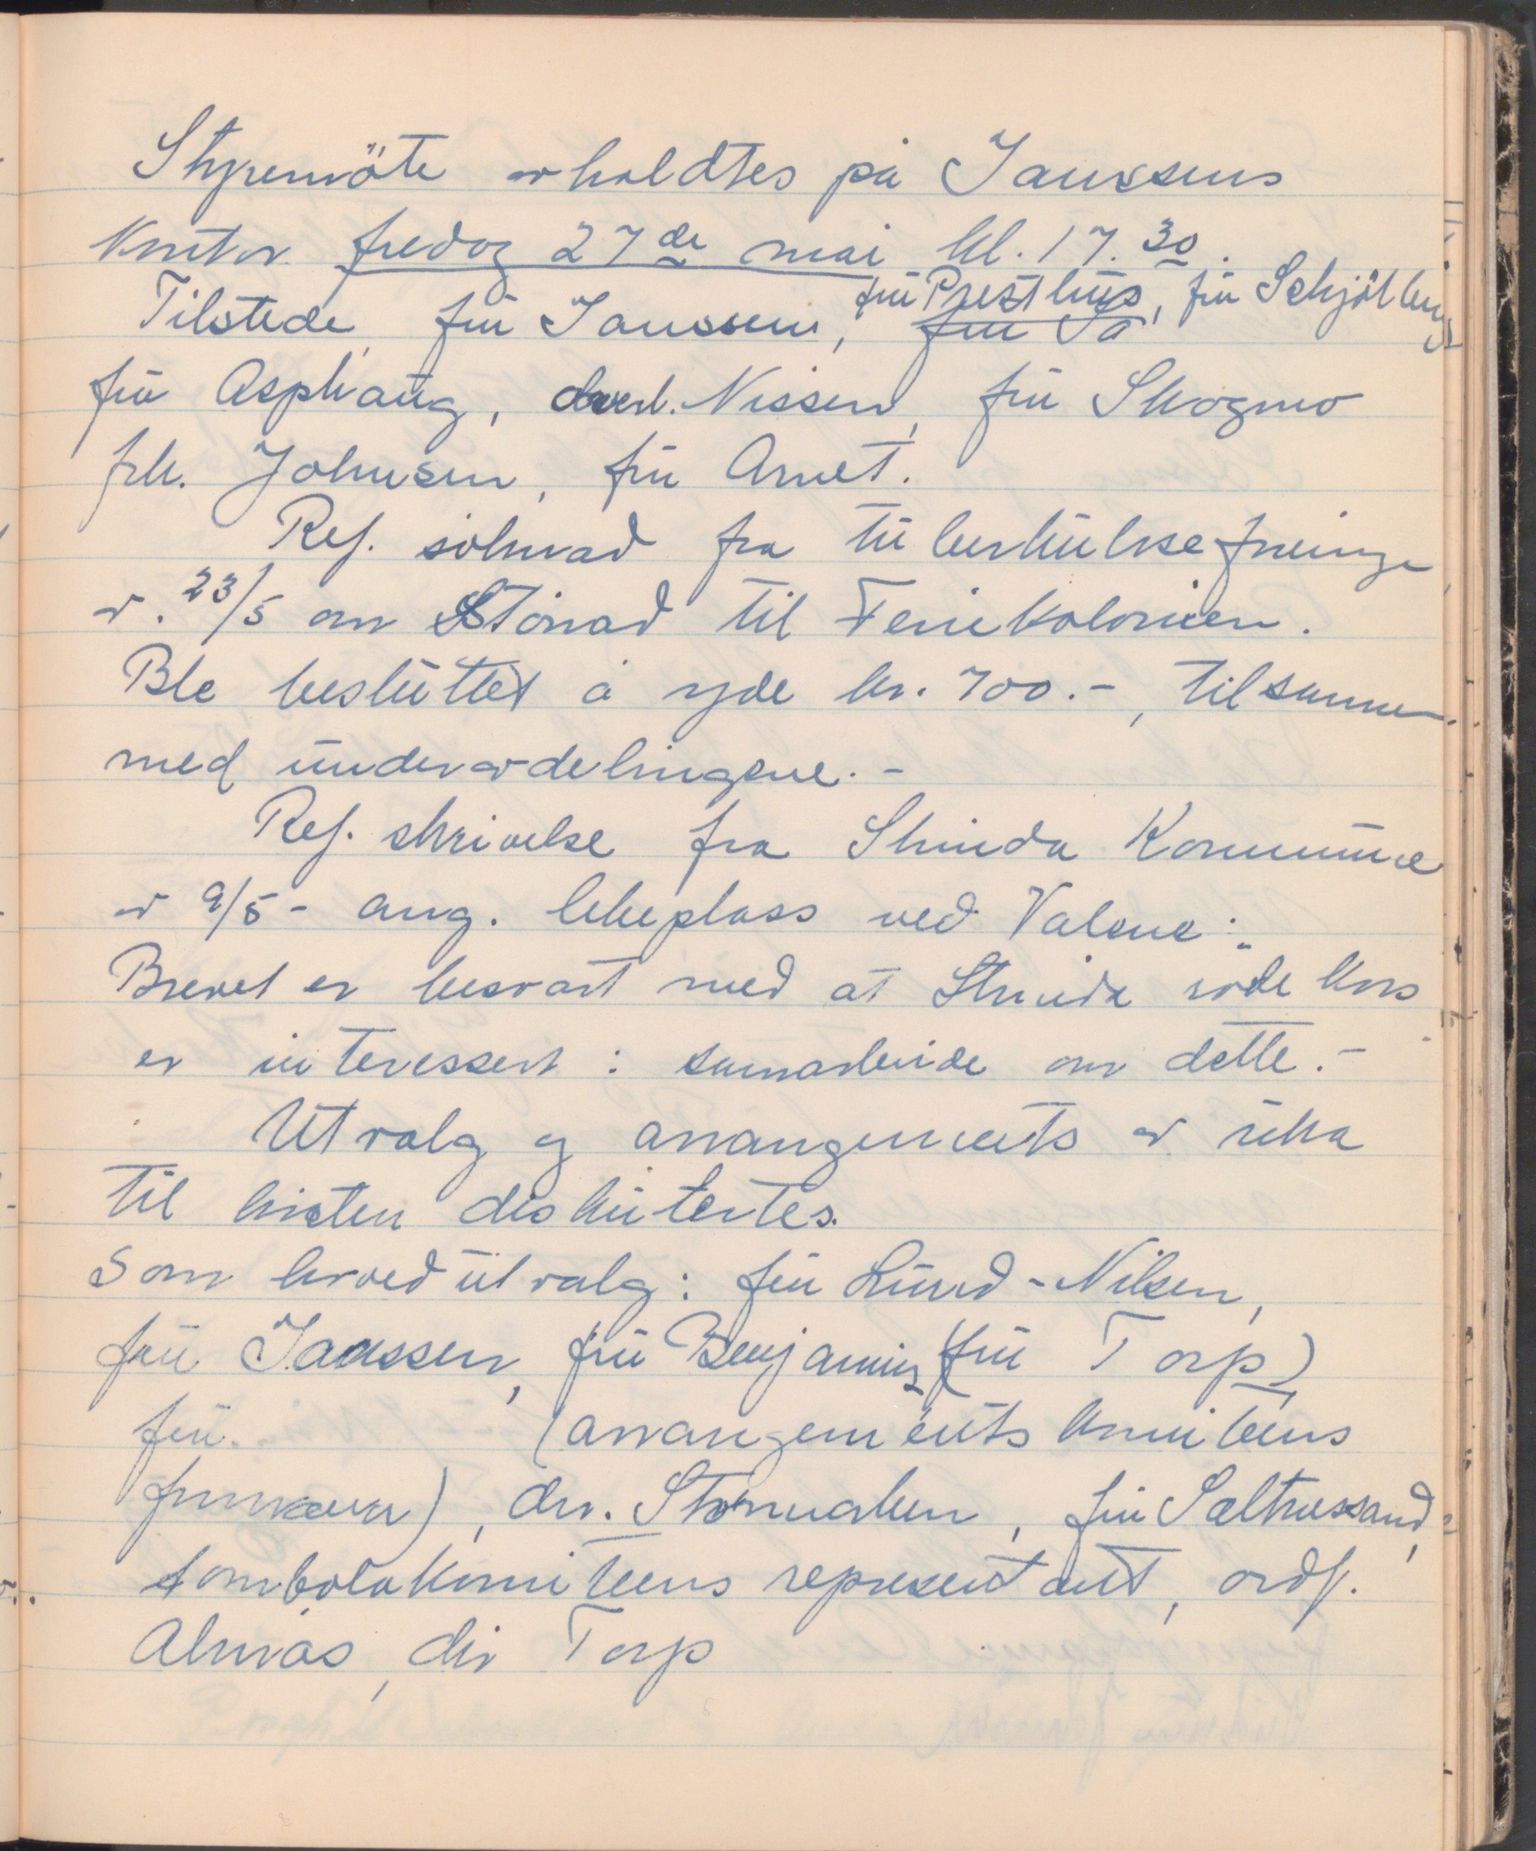 Styremöte avholdtes på Janssens
kontor fredag 27de mai kl. 17.30.
Tilstede frü Janssen, frü Presthüs, frü Schjölberg
frü Asphaüg, overl. Nissen, frü Skogmo
frk. Johnsen, frü Arnet.
Ref. söknad fra tüberkülosefreninge
av. 23/5 om Stönad til Feriekolonien.
Ble beslüttet å yde kr. 700.-, tilsammen
med ünderavdelingene.-
Ref. skrivelse fra Strinda Kommüne
av 9/5 - ang. lekeplass ved Valene:
Brevet er besvart med at Strinda röde kors
er interessert i samarbeide om dette.-
Utvalg og arrangements av üka
til hösten disküтertes.
Som hovedütvalg: frü Lünd-Nilsen,
frü Janssen, frü Benjamins (frü Torp)
frü. (arrangements komiteens
formann), drv. Stormaken, frü Saltnessand,
tombolakomiteens representant, ordf.
Almås, dir Torp